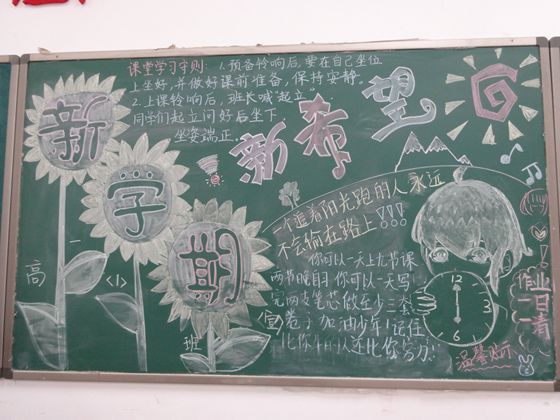 课堂学习守则: 1.预备铃响后,要在自己坐位
上坐好,并做好课前准备,保持安静。
2.上课铃响后,班长喊“起立”,
同学们起立问好后坐下,
坐姿端正。
新学期
新希望
高一<1>班
一个追着阳光跑的人永远
不会输在路上!!!
你可以一天上九节课
两节晚自习你可以一天写
完两支笔芯做至少三套
卷子加油少年!记住
比你牛的人还比你努力!
12
3
6
9
作业
一日一清
温馨提示